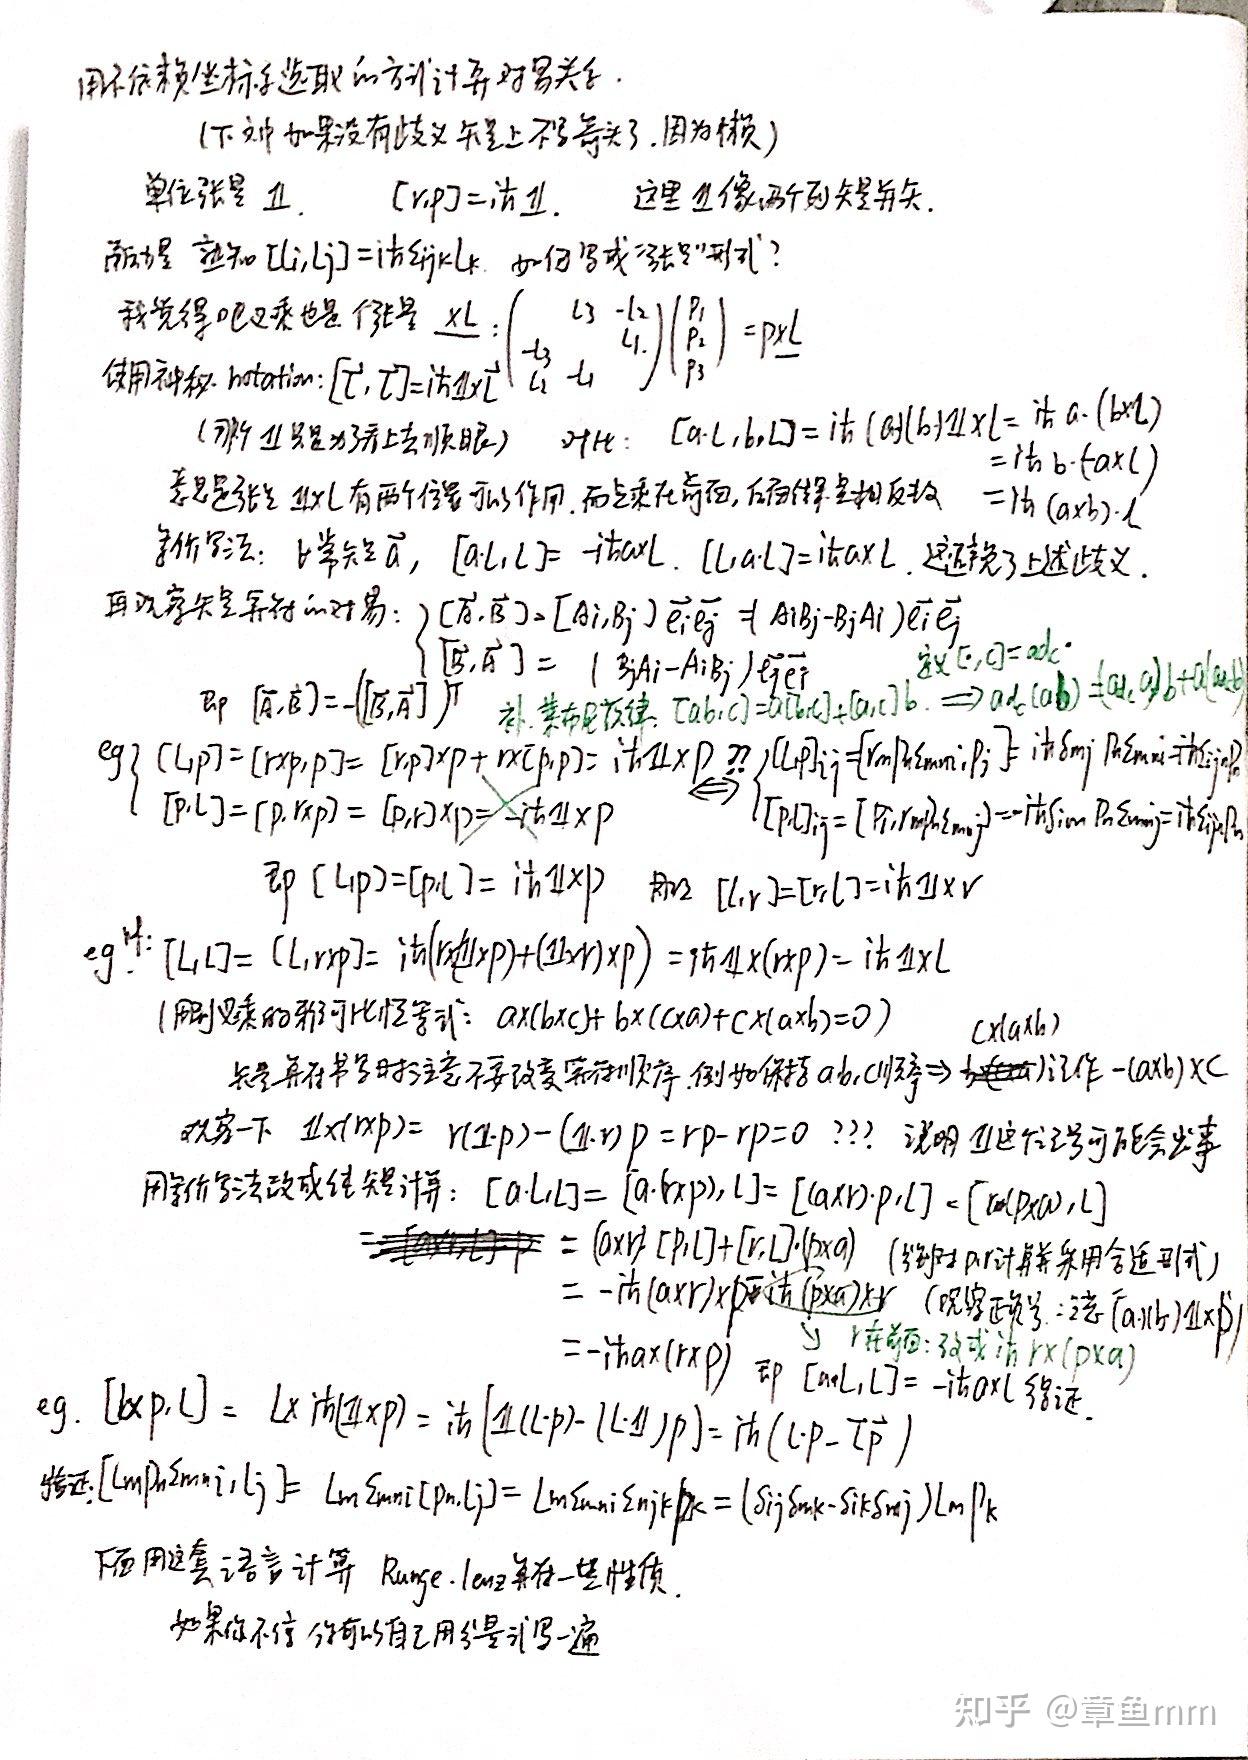 用不依赖坐标系选取的方式计算对易关系.
(下文中如果没有歧义矢量上不写箭头了.因为懒)
单位张量 𝟙. [r,p]=iℏ𝟙. 这里𝟙像两个列矢量并矢.
而动量 熟知[Li,Lj]=iℏεijkLk. 如何写成"张量"形式?
我觉得吧叉乘也是个张量 ×L : ( L3 -L2 -L3 L1 L2 -L1 )( P1 P2 P3 ) = p×L
使用神秘notation: [L⃗,L⃗]=iℏ𝟙×L⃗
(那个𝟙只是为了看上去顺眼) 对比: [a·L,b·L]=iℏ(a·)(b·)𝟙×L=iℏ a·(b×L)
=iℏ b·(-a×L)
意思是张量𝟙×L有两个位置可以作用.而点乘在前面,后面结果是相反数 =iℏ(a×b)·L
等价写法: 比常矢量a⃗, [a·L,L]=-iℏa×L. [L,a·L]=iℏa×L. 这避免了上述歧义.
再观察矢量算符的对易: { [A⃗,B⃗]=[Ai,Bj]e⃗ie⃗j=(AiBj-BjAi)e⃗ie⃗j
[B⃗,A⃗]=(BjAi-AiBj)e⃗je⃗i
定义[·,c]=adc·
即 [A⃗,B⃗]=-([B⃗,A⃗])ᵀ 补.莱布尼茨律. [ab,c]=a[b,c]+[a,c]b. ⟹ adc(ab)=(adc a)b+a(adc b)
eg { [L,p]=[r×p,p]=[r,p]×p+r×[p,p]=iℏ𝟙×p ?? ⟺ { [L,p]ij=[rmpnεmni,pj]=iℏδmj pnεmni=iℏεijnpn
[p,L]=[p,r×p]=[p,r]×p=-iℏ𝟙×p [p,L]ij=[pi,rmpnεmnj]=-iℏδim pnεmnj=iℏεijnpn
即 [L,p]=[p,L]=iℏ𝟙×p 那么 [L,r]=[r,L]=iℏ𝟙×r
eg: [L,L]=[L,r×p]=iℏ(r×(𝟙×p)+(𝟙×r)×p)=iℏ𝟙×(r×p)=iℏ𝟙×L
(用到叉乘的雅可比恒等式: a×(b×c)+b×(c×a)+c×(a×b)=0)
c×(a×b)
矢量算符书写时注意不要改变算符顺序.例如保持abc顺序⇒ 记作 -(a×b)×c
观察一下 𝟙×(r×p)= r(𝟙·p)-(𝟙·r)p=rp-rp=0 ??? 说明𝟙这个记号可能会出事
用等价写法改成纯矢量计算: [a·L,L]=[a·(r×p),L]=[(a×r)·p,L]=[r·(p×a),L]
=(a×r)·[p,L]+[r,L]·(p×a) (分别对p,r计算并采用合适形式)
=-iℏ(a×r)×p-iℏ(p×a)×r (观察正负号:注意(a·)(b·)𝟙×p)
↘ r在前面:改成iℏ r×(p×a)
=-iℏa×(r×p) 即 [a·L,L]=-iℏa×L 得证.
eg. [L×p,L]=L×iℏ(𝟙×p)=iℏ[𝟙(L·p)-(L·𝟙)p]=iℏ(L·p-L⃗p⃗)
验证:[Lmpnεmni,Lj]=Lmεmni[pn,Lj]=Lmεmniεnjkpk=(δijδmk-δikδmj)Lmpk
下面用这套语言计算 Runge-lenz算符一些性质.
如果你不信 你可以自己用分量式写一遍
知乎 @章鱼mm